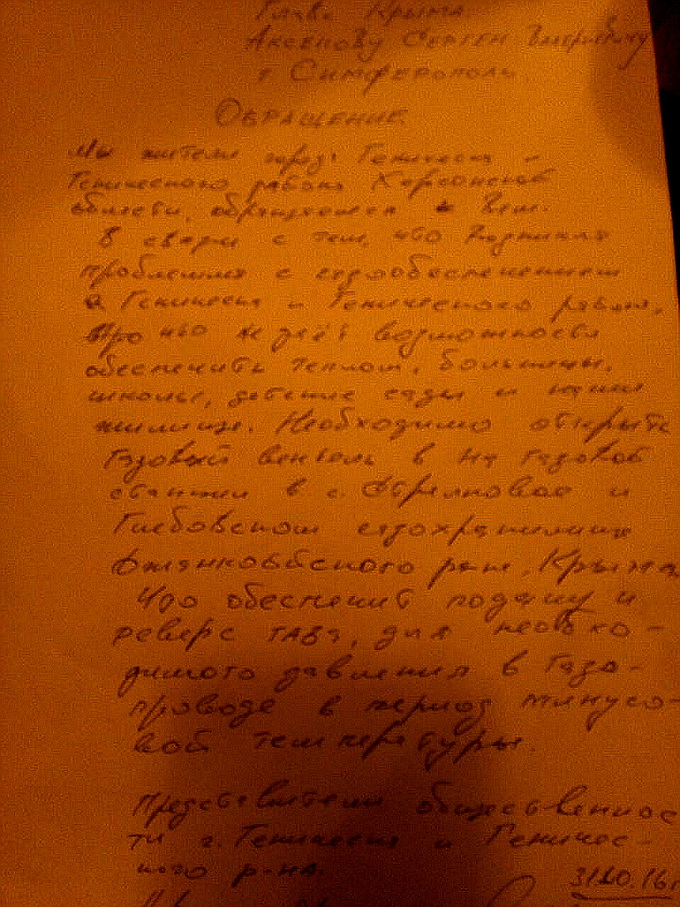 Главе Крыма
Аксенову Сергею Валериевичу
г Симферополь.
Обращение
Мы жители города Геническа и
Генического района Херсонской
области, обращаемся к Вам.
В связи с тем, что возникла
проблема с газообеспечением
г. Геническа и Генического района,
что не даёт возможности
обеспечить теплом, больницы,
школы, детские сады и наши
жилище. Необходимо открыть
газовый вентель в на газовой
станции в с. Стрелковое и
Глебовском газохранилище
Джанкойского рай., Крыма
Что обеспечит подачу и
реверс газа, для необхо-
димого давления в газо-
проводе в период минусо-
вой температуры.
Представители общественнос
ти г. Геническа и Геничес-
кого р-на.
31.10.16г